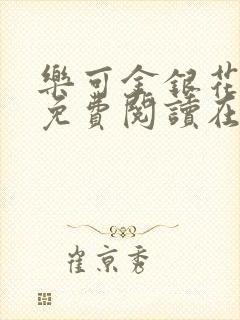 樂可金銀花
免費閱讀在
崔京秀